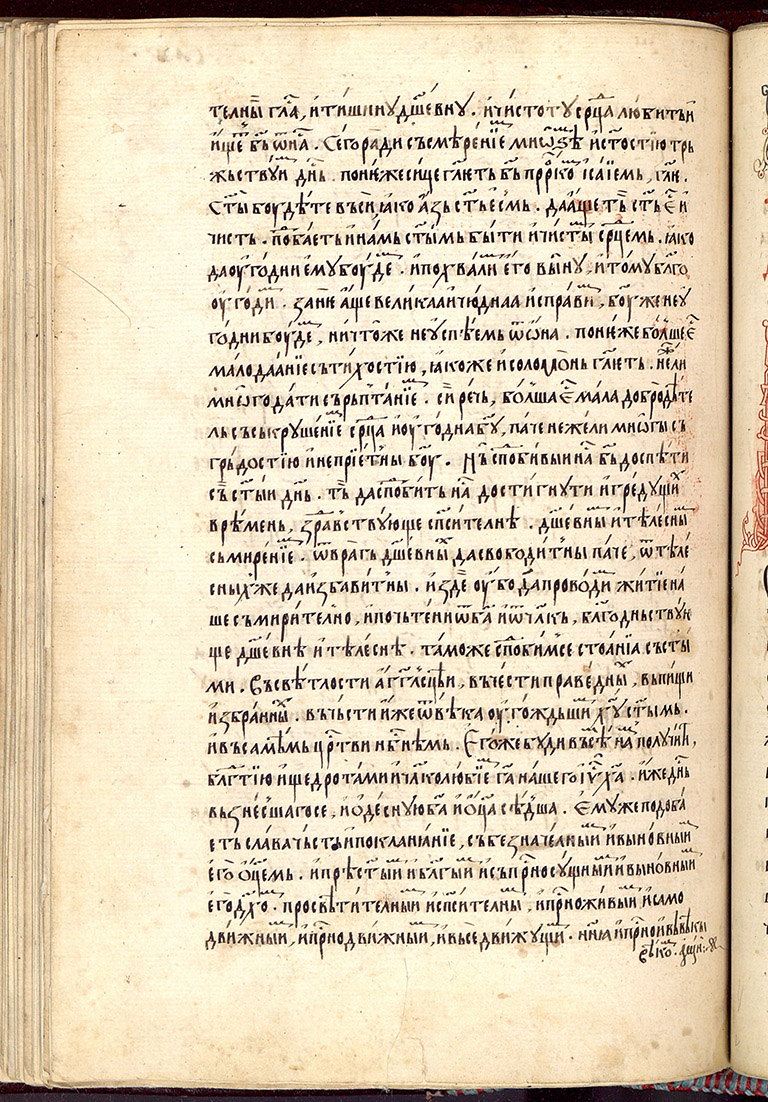 телны́ гла̑, и҆ти́шинꙋ дш҃е́внꙋ. и҆чистотꙋ̀ ср҃ца лю́битъ и҆
и҆́ще бъ҃ ѿна̑. Сего̀ ра́ди съсмѣре́нїе мнѡ́зѣ и҆ст҃остїю тръ
жьствꙋи дн҃ь. поне́же си́це гл҃етъ бъ҃ прⷪ҇ркоⷨ і҆са́їемь, гл҃ѧ.
Ст҃ы бꙋ́дѣте въсѝ, ꙗ҆́ко а҆́зь ст҃ь е҆́смь. да а҆́ще тъⷨ ст҃ь е҆̑ и҆
чистъ. поⷣба́етъ и҆на́мь ст҃ымь бы́ти и҆чи́стыⷨ ср҃цемь. ꙗ҆́ко
да ᲂу҆го́дни е҆мꙋ̀ бꙋ́деⷨ. и҆похва́лиⷨ е҆го̀ вы́нꙋ, и҆томꙋ̀ бл҃го
ᲂу҆го́диⷨ. зане́ а҆́ще вели́каа и҆чю́днаа и҆спра́виⷨ, бг҃ꙋ же неᲂу҆
го́дни бꙋ́деⷨ, ничто́же неᲂу҆спѣ́емь ѿѡна̀. поне́же бо́лшее е҆̑
ма́ло даа́нїе съти́хостїю, ꙗ҆́коже и҆соломѡ́нь гл҃етъ. не́же́ли
мнѡ́го да́ти съръпта́нїеⷨ. си́ рѣчь, бо́лша е҆̑ ма́ла добродѣ́те
ль съськрꙋше́нїеⷨ ср҃ца и҆ᲂу҆го́дна бг҃ꙋ, па́че не́жели мнѡ́гы съ
грь́достїю и҆непрїе́тны бг҃ꙋ. Нъ̀ спⷣо́бивыи на̑ бъ҃ доспѣ́ти
съ ст҃ы́и дн҃ь. тъⷨ да спⷣо́битъ на̑ дости́гнꙋти и҆грⷣе́дꙋщиⷯ
врѣ́мень, здра́вствꙋюще сп҃си́телнѣ. дш҃е́вныⷨ и҆тѣле́сныⷨ
съмире́нїеⷨ. ѿвра́гъ дш҃е́вныⷯ да свободи́тъ ны па́че, ѿтѣле́
сныⷯ же да и҆зба́витъ ны. и҆здѐ ᲂу҆́бо да прово́диⷨ житїе на́
ше съмири́телно, и҆почьте́ни ѿ бг҃а и҆ѿчл҃къ, бл҃годньствꙋю
ще дш҃е́внѣ и҆тѣле́снѣ. та́може спⷣо́бимсе стоа́нїа съст҃ы
ми. Въ свѣ́тлости а҆́гг҃лсцѣи, въче́сти пра́веⷣныⷯ, въпи́щи
и҆збра́нныⷯ. въча́сти и҆́же ѿвѣ́ка ᲂу҆го́ждьшиⷯ хꙋ҃ ст҃ымь.
и҆въса́мѣмь цр҃тви нбⷭ҇нѣмь. Е҆го́же бꙋ́ди въсѣⷨ на̑ полꙋчи́ти,
бл҃гтїю и҆щедро́тами и҆чл҃колю́бїеⷨ га҃ на́шего і҆у҃ ха҃. и҆́же дн҃ь
възне́сшагосе, и҆ѡ҆деснꙋ́ю ба҃ и҆ѡ҆ц҃а сѣ́дша. Е҆мꙋ́же подоба́
етъ сла́ва ча́сть и҆покланꙗ́нїе, събезнача́лныиⷨ и҆вынѡ́вныиⷨ
е҆го̀ ѻ҆ц҃е́мь. и҆прѣст҃ы́иⷨ и҆бл҃гы́иⷨ и҆съпрⷭ҇носꙋ́щимиⷨ и҆вынѡ́вныиⷨ
е҆го̀ дх҃оⷨ. просвѣти́телныиⷨ и҆сп҃си́телныиⷨ, и҆прⷭ҇ножи́выиⷨ и҆само
дви́жныиⷨ, и҆прⷭ҇нодви́жныиⷨ, и҆въседви́жꙋщиⷨ. нн҃ꙗ и҆прⷭ҇но и҆въвѣ́кы
вѣ́коⷨ. а҆ми́нь:~